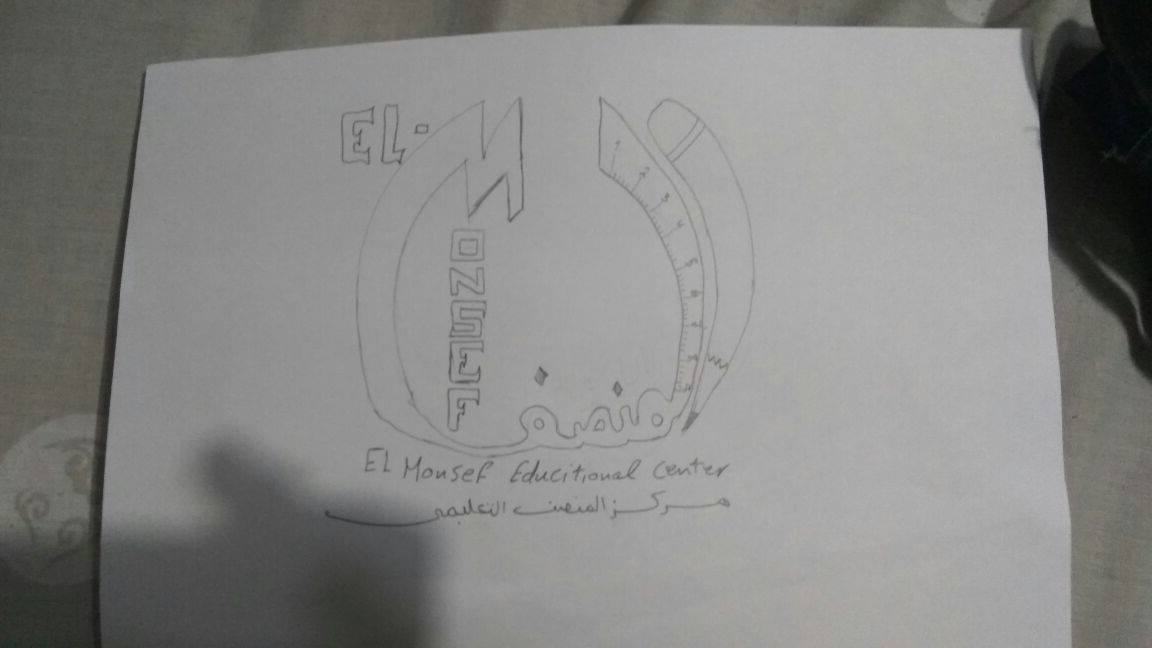 EL-M
ONSEF
1 2 3 4 5 6 7 8 9
منصف
EL Monsef Educitional Center
مركز المنصف التعليمى